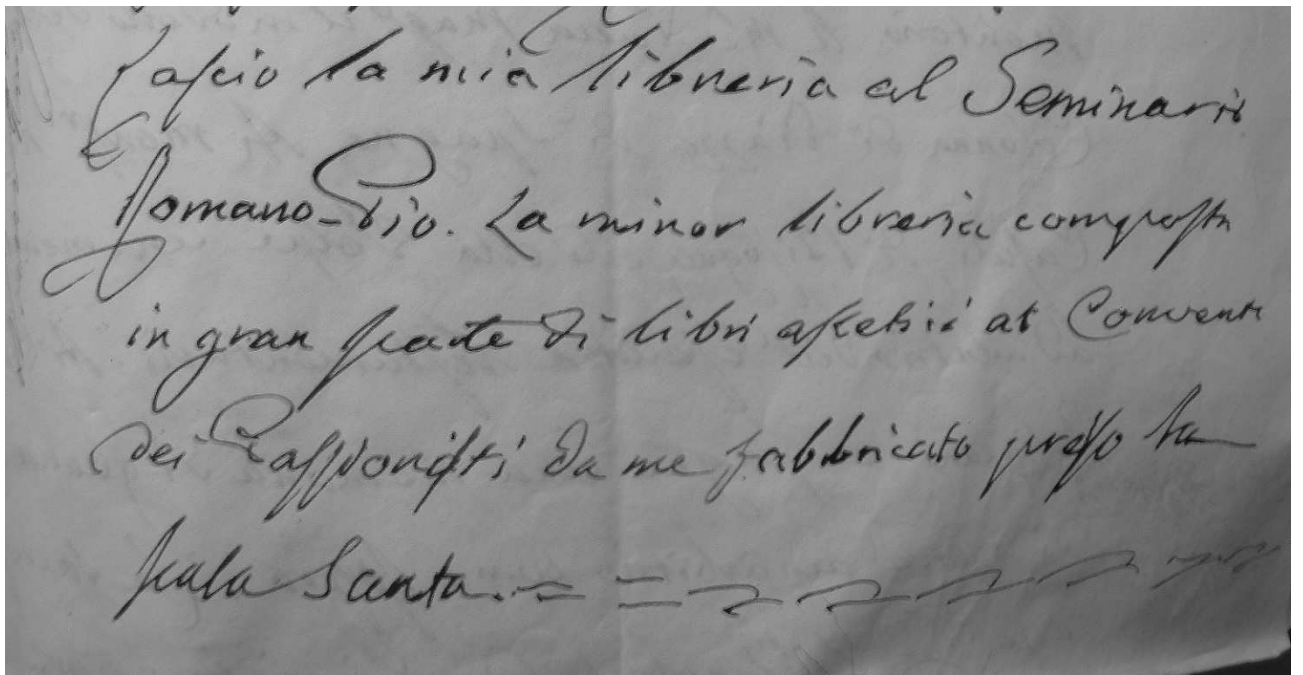 Lascio la mia libreria al Seminario
Romano-Pio. La minor libreria composta
in gran parte di libri ascetici al Convento
dei Passionisti da me fabbricato presso la
scala Santa.